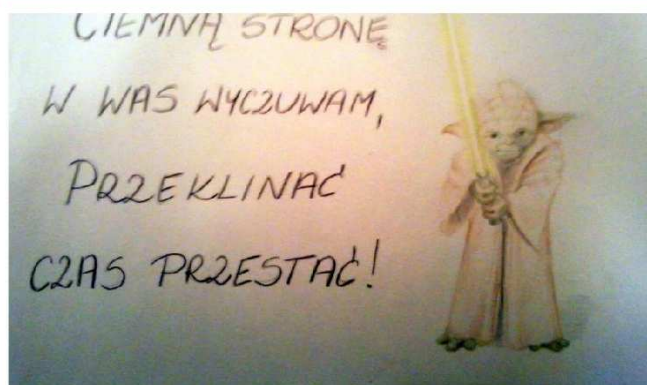 CIEMNĄ STRONĘ
W WAS WYCZUWAM,
PRZEKLINAĆ
CZAS PRZESTAĆ!